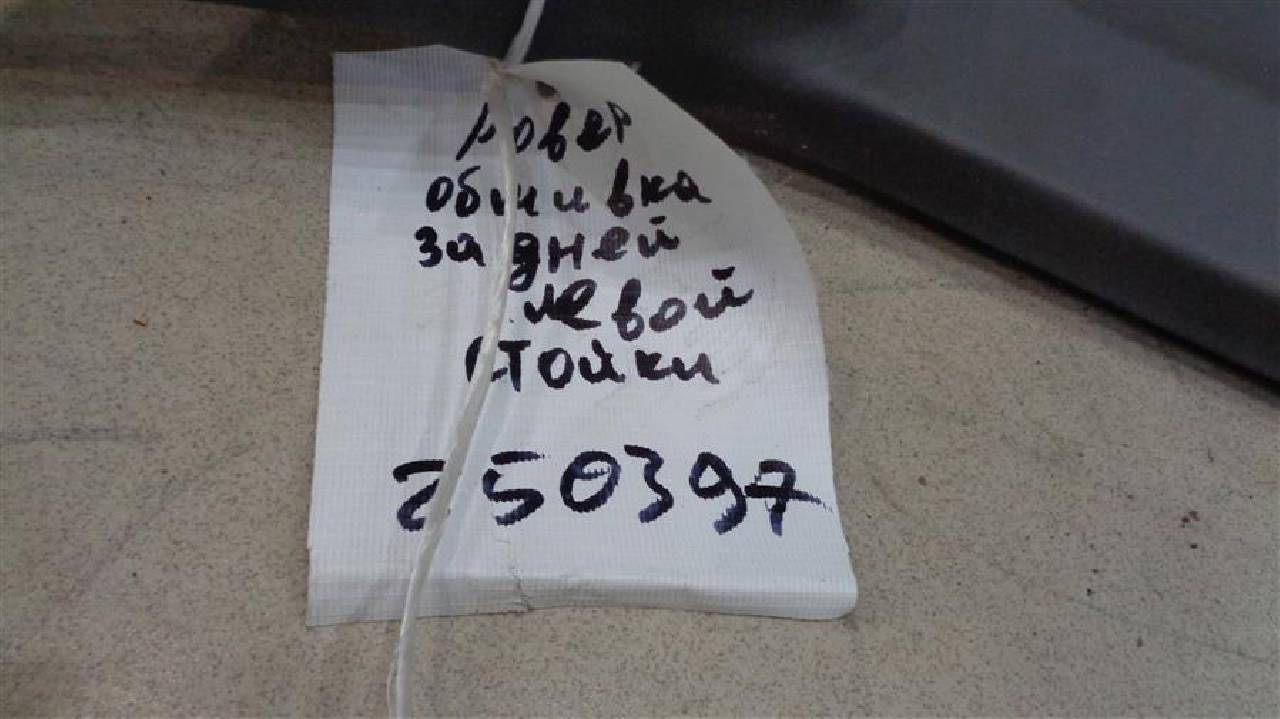 Ровер
обшивка
задней
левой
стойки
250397